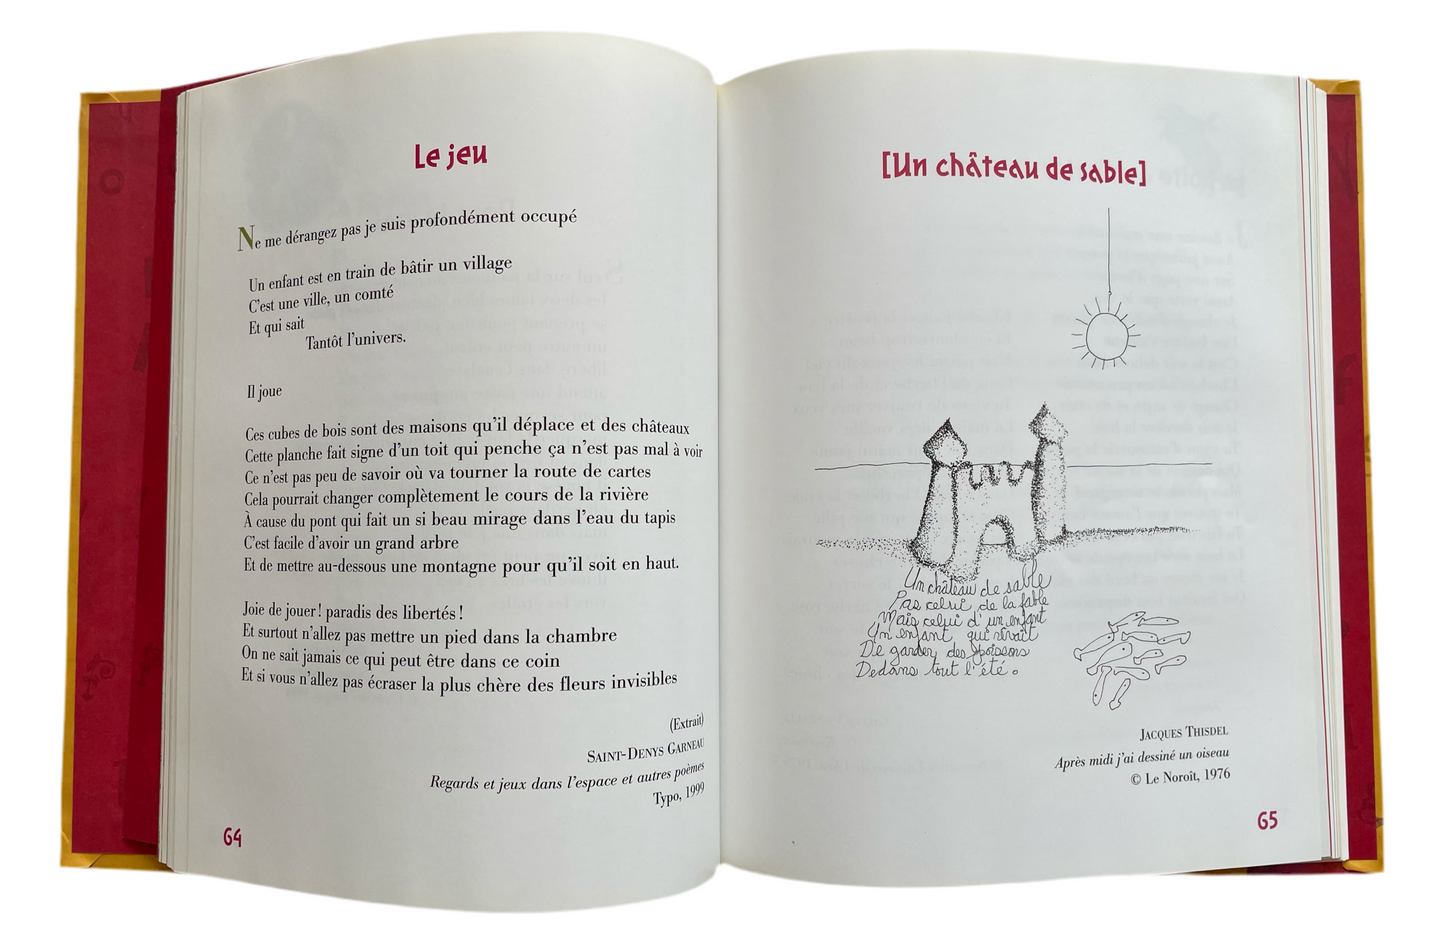 Le jeu
Ne me dérangez pas je suis profondément occupé
Un enfant est en train de bâtir un village
C'est une ville, un comté
Et qui sait
Tantôt l'univers.
Il joue
Ces cubes de bois sont des maisons qu'il déplace et des châteaux
Cette planche fait signe d'un toit qui penche ça n'est pas mal à voir
Ce n'est pas peu de savoir où va tourner la route de cartes
Cela pourrait changer complètement le cours de la rivière
À cause du pont qui fait un si beau mirage dans l'eau du tapis
C'est facile d'avoir un grand arbre
Et de mettre au-dessous une montagne pour qu'il soit en haut.
Joie de jouer! paradis des libertés!
Et surtout n'allez pas mettre un pied dans la chambre
On ne sait jamais ce qui peut être dans ce coin
Et si vous n'allez pas écraser la plus chère des fleurs invisibles
(Extrait)
SAINT-DENYS GARNEAU
Regards et jeux dans l'espace et autres poèmes
Typo, 1999
64
[Un château de sable]
Un château de sable
Pas celui de la fable
Mais celui d'un enfant
Un enfant qui rêvait
De garder des poissons
Dedans tout l'été.
JACQUES THISDEL
Après midi j'ai dessiné un oiseau
© Le Noroît, 1976
65